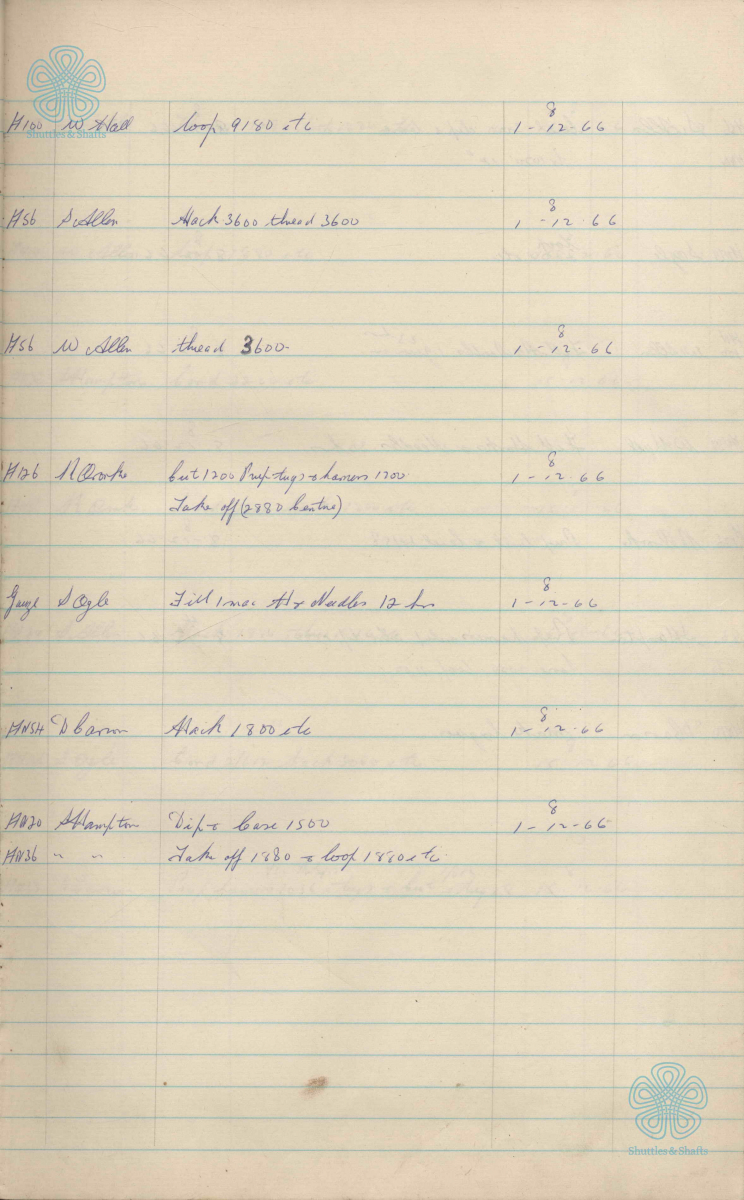 8
H100 W Hall loop 9180 etc 1-12-66
Shuttles & Shafts
8
H56 S Allen Hack 3600 thread 3600 1-12-66
8
H56 W Allen thread 3600 1-12-66
8
H126 Cut 1200 Prep tugs & harness 1200 1-12-66
Take off (2880 Centre)
8
Gauze S Ogle Fill 1 mac Needles 12 hrs 1-12-66
8
HN54 D Carson Hack 1800 etc 1-12-66
8
HN20 S Hampton Dip & Case 1500 1-12-66
HN36 " " Take off 1880 & loop 1880 etc
Shuttles & Shafts